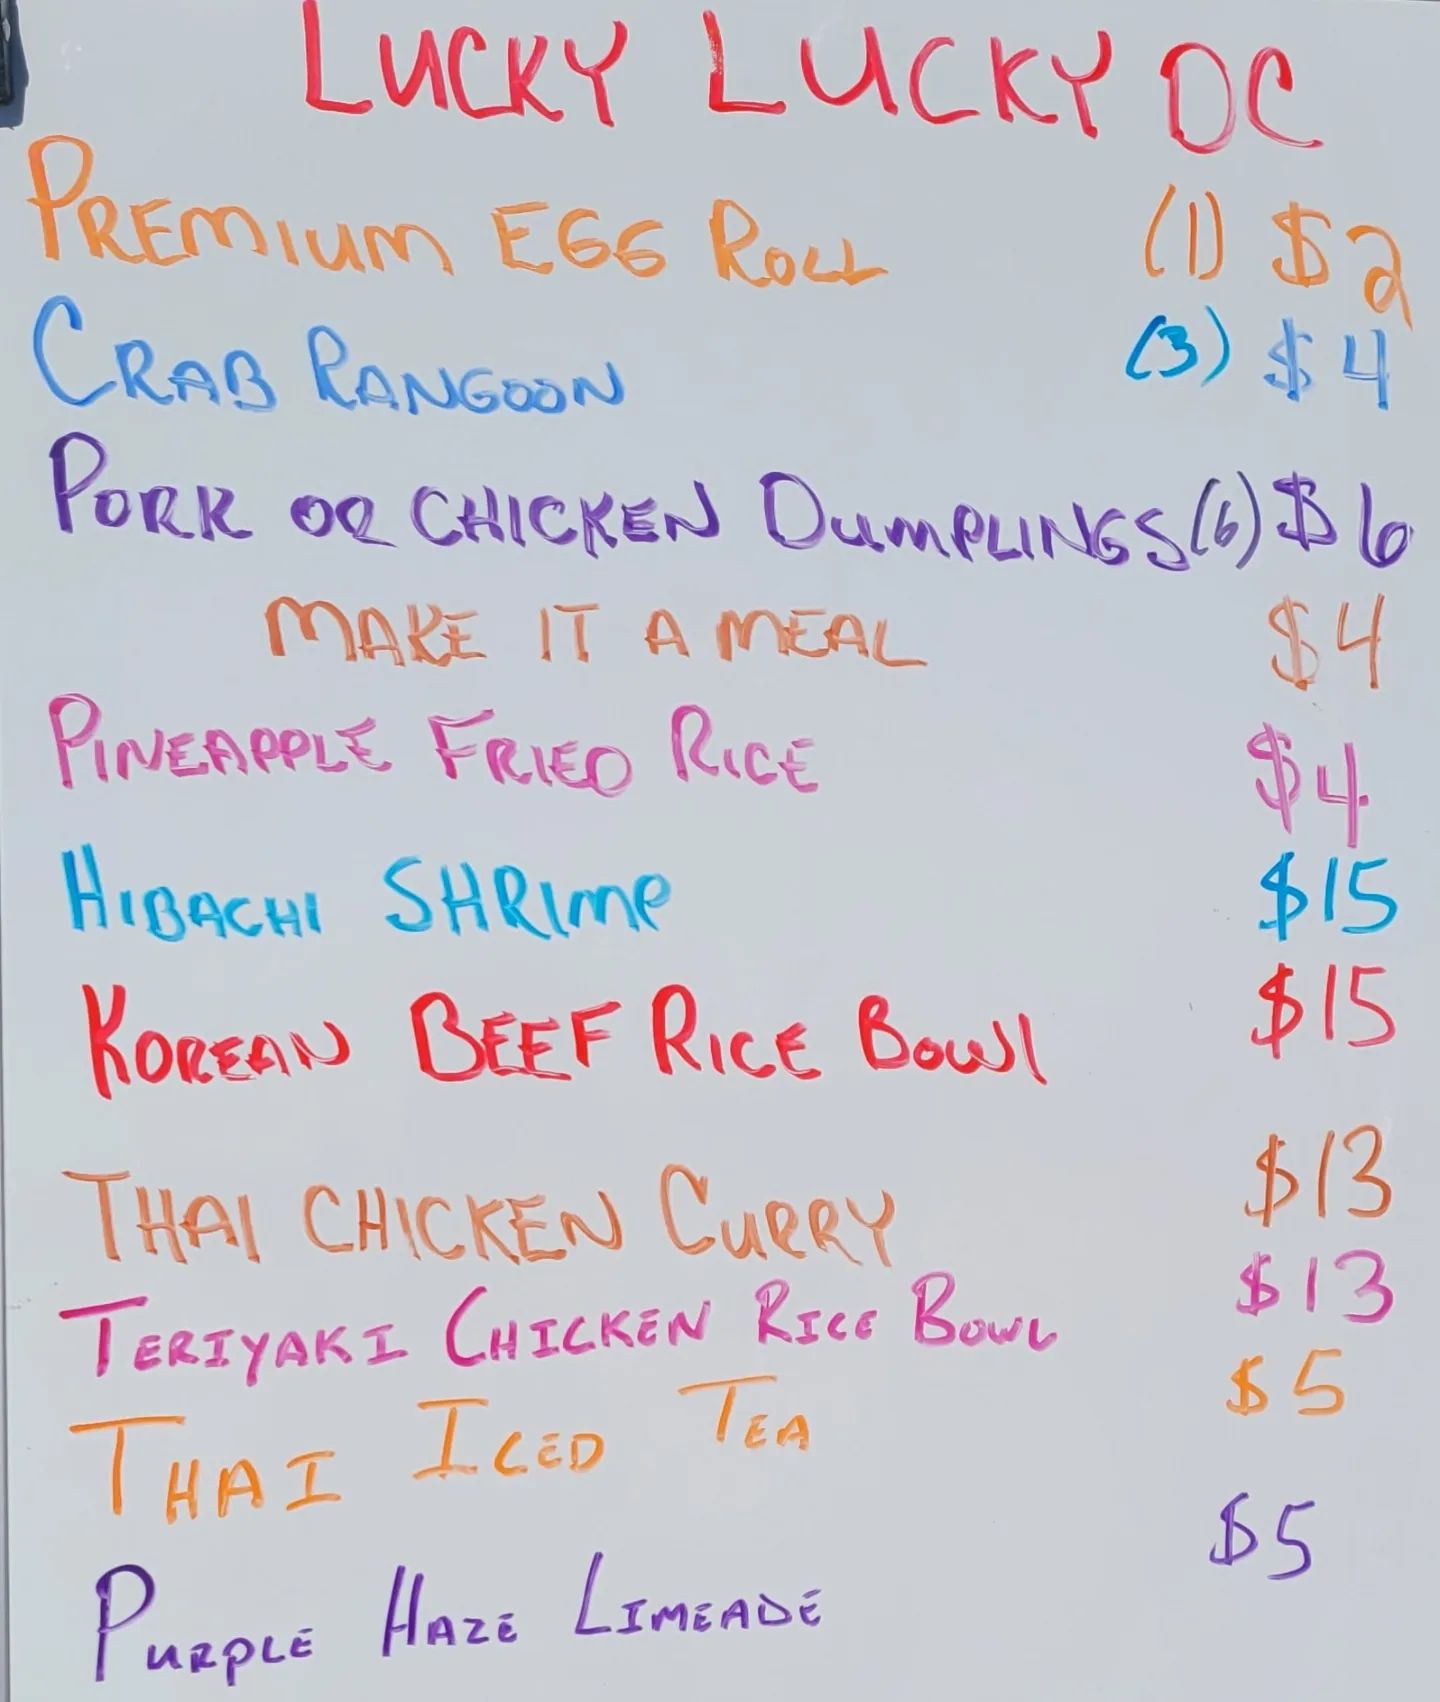 LUCKY LUCKY DC
PREMIUM EGG ROLL (1) $2
CRAB RANGOON (3) $4
PORK OR CHICKEN DUMPLINGS (6) $6
MAKE IT A MEAL $4
PINEAPPLE FRIED RICE $4
HIBACHI SHRIMP $15
KOREAN BEEF RICE BOWl $15
THAI CHICKEN CURRY $13
TERIYAKI CHICKEN RICE BOWL $13
THAI ICED TEA $5
PURPLE HAZE LIMEADE $5